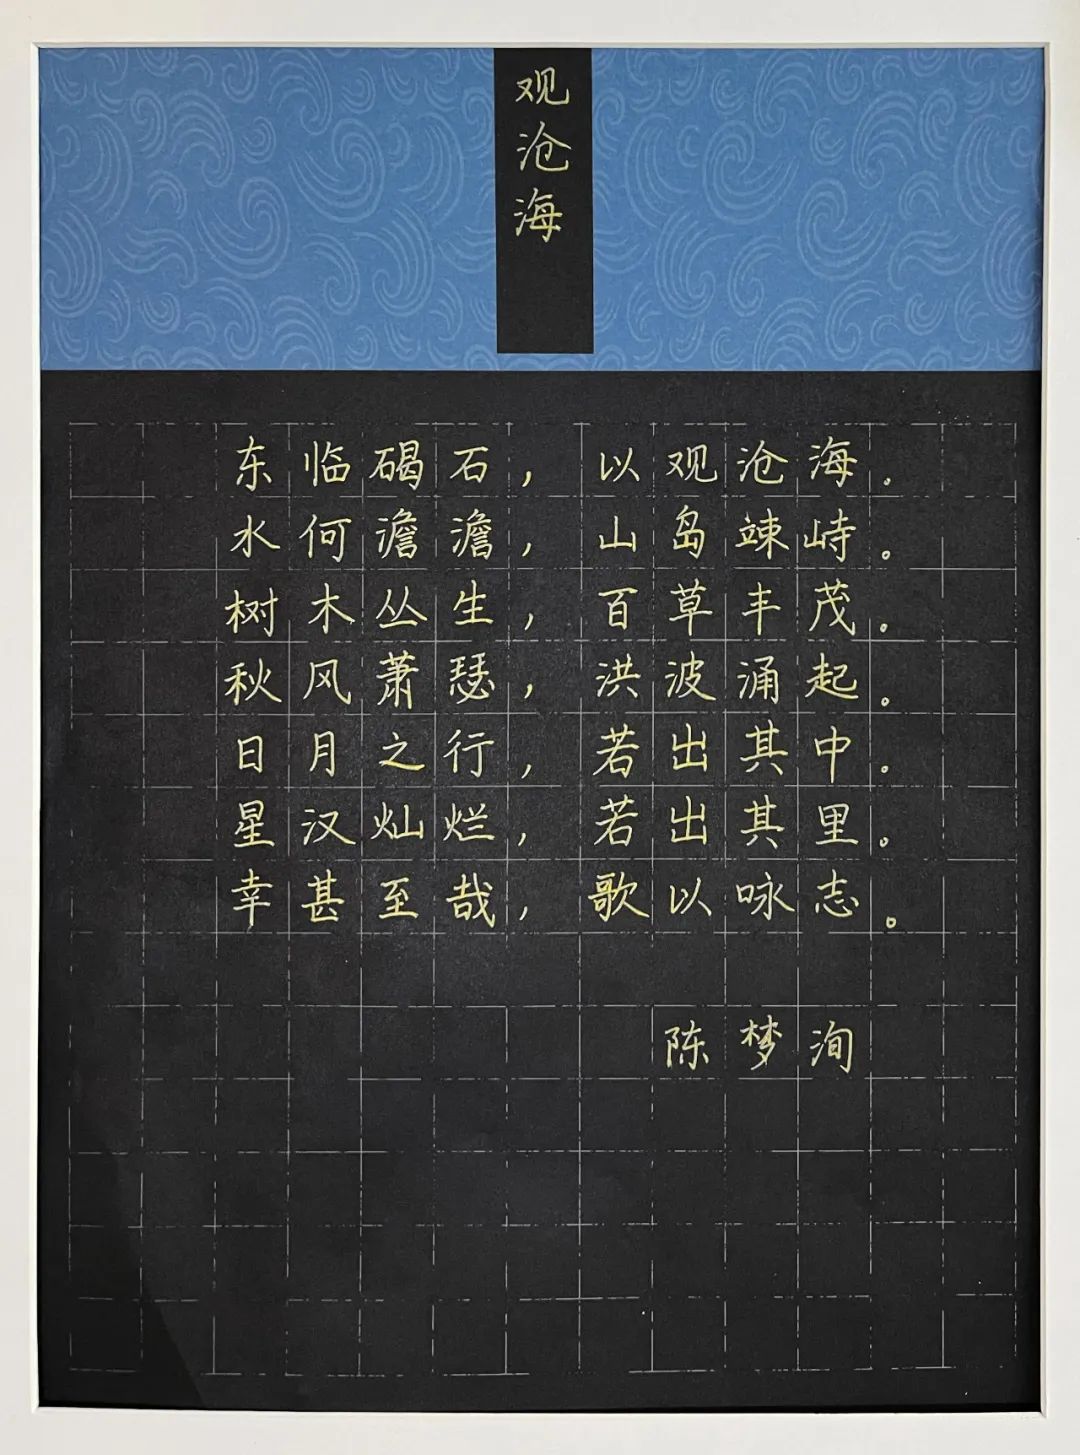 观沧海
东临碣石，以观沧海。
水何澹澹，山岛竦峙。
树木丛生，百草丰茂。
秋风萧瑟，洪波涌起。
日月之行，若出其中。
星汉灿烂，若出其里。
幸甚至哉，歌以咏志。
陈梦洵